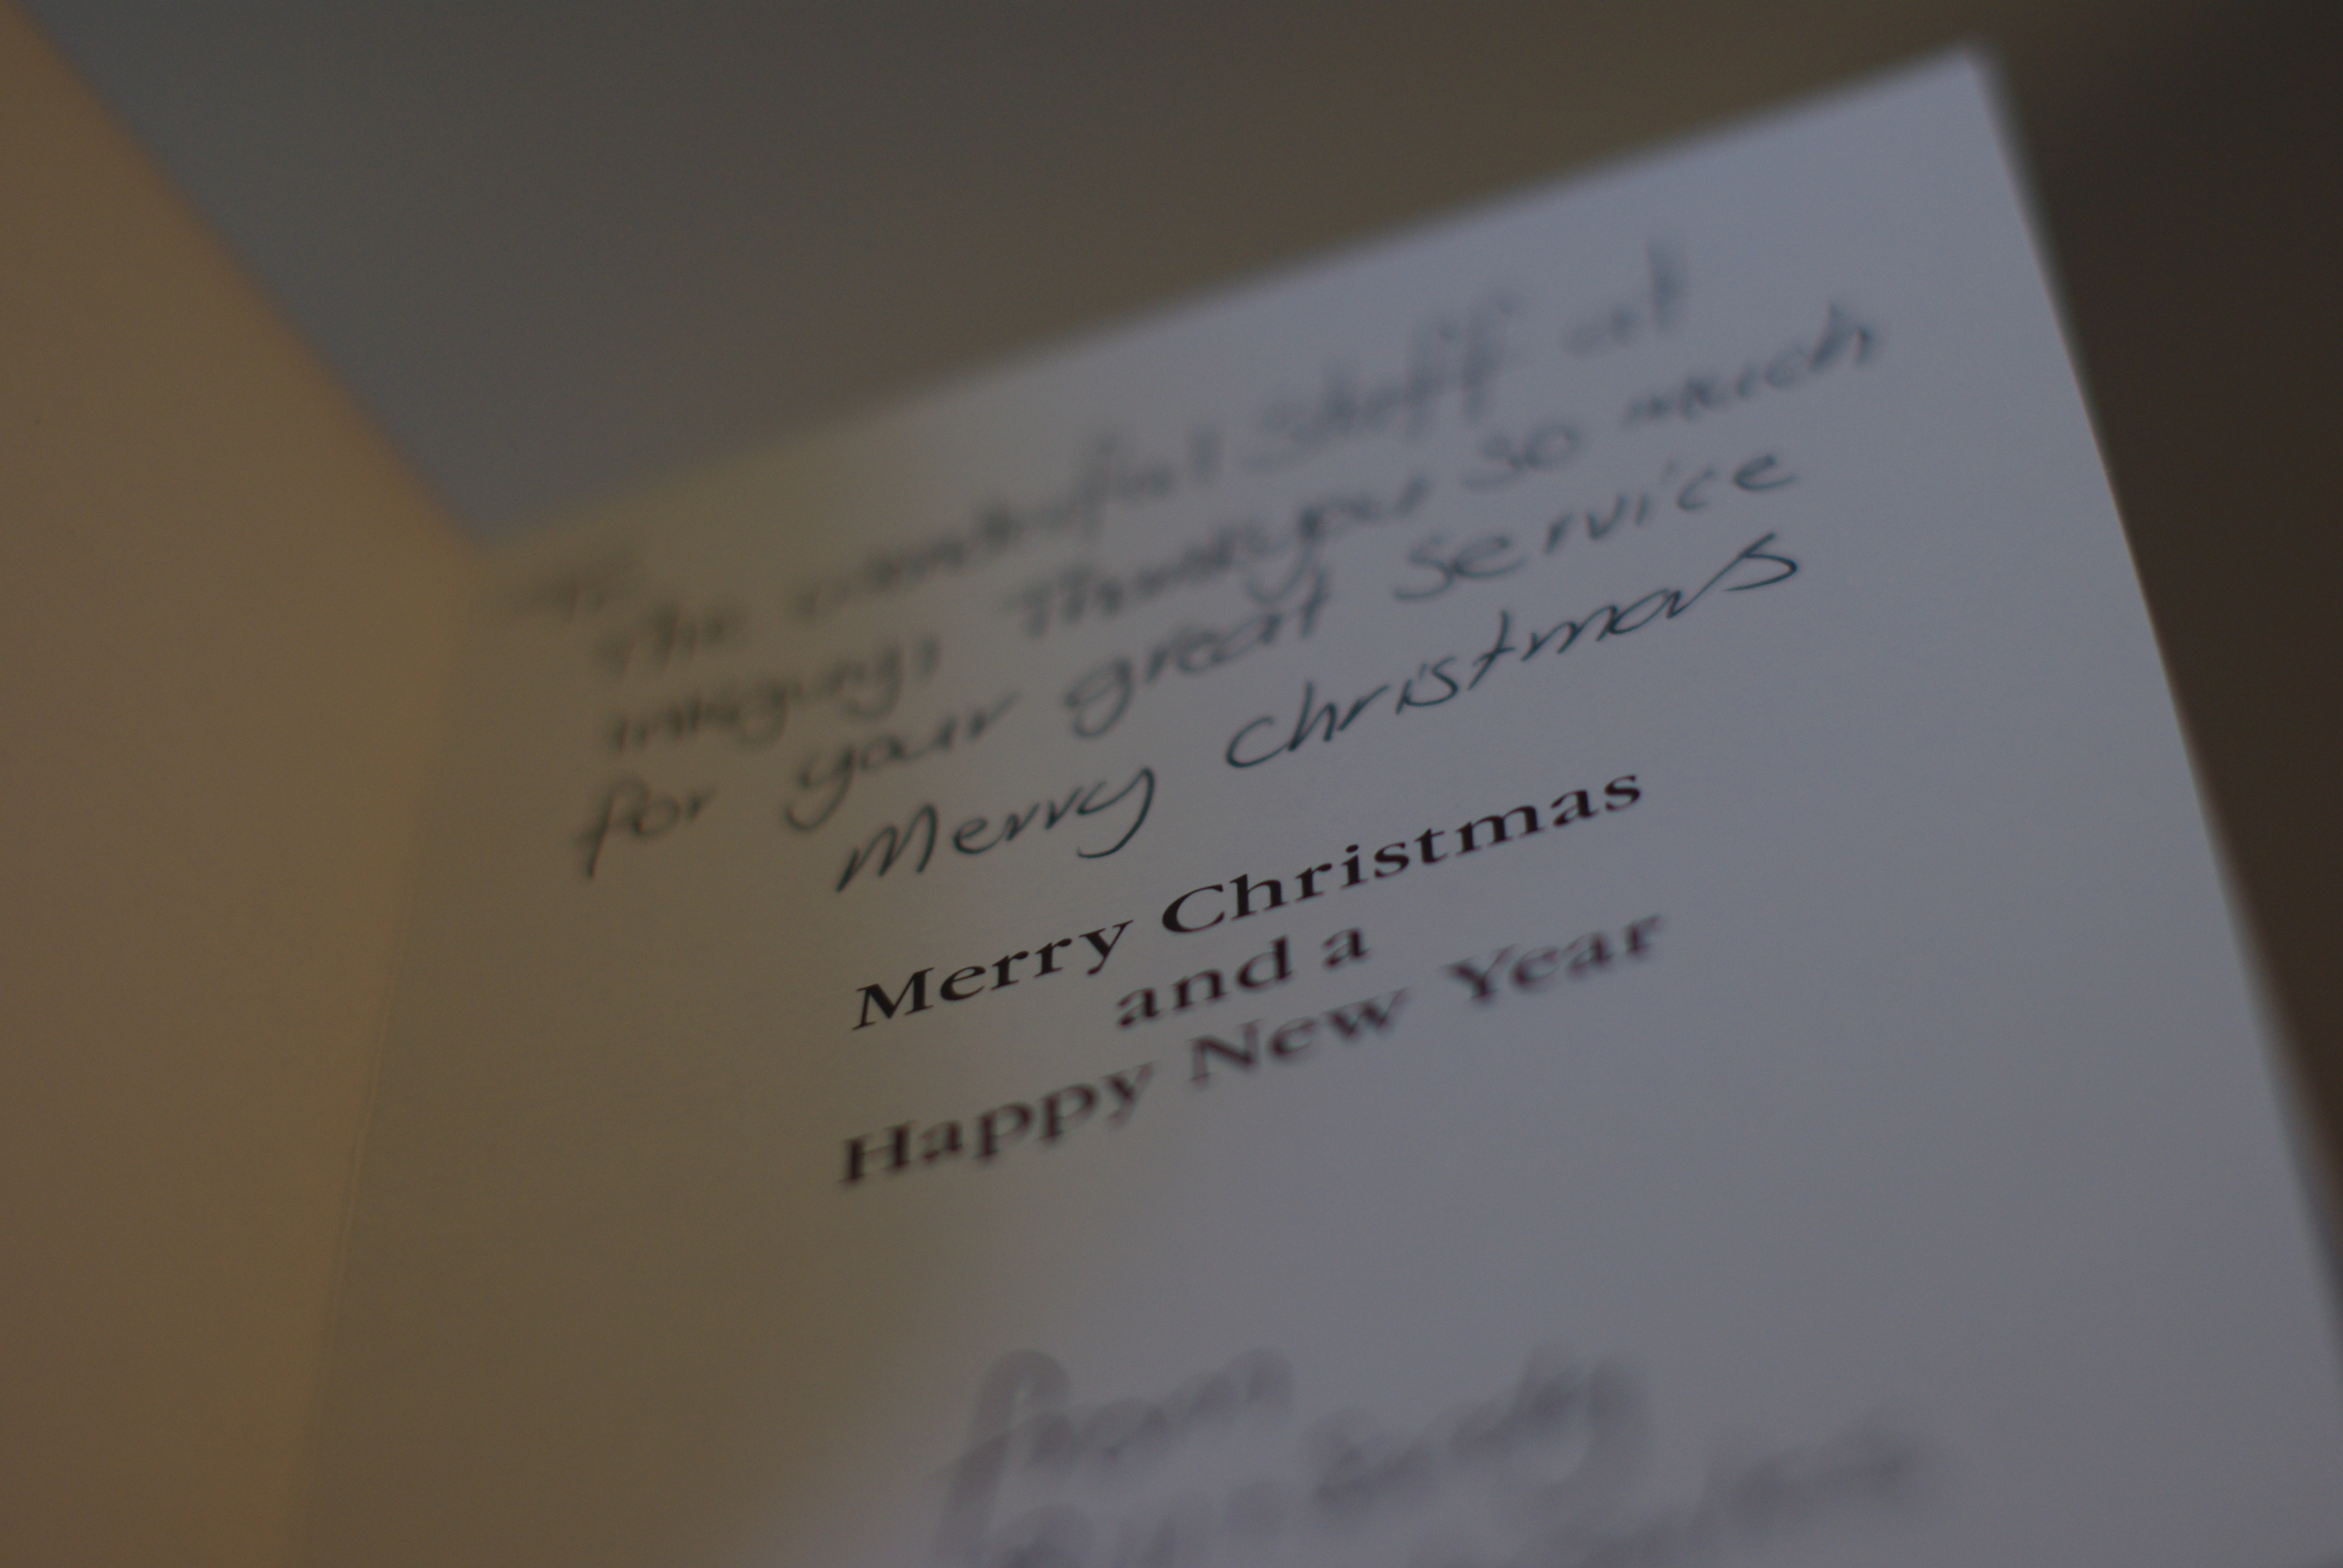 To
The wonderful Staff at
Thankyou so much
for your great service
Merry christmas
Merry Christmas
and a
Happy New Year
from